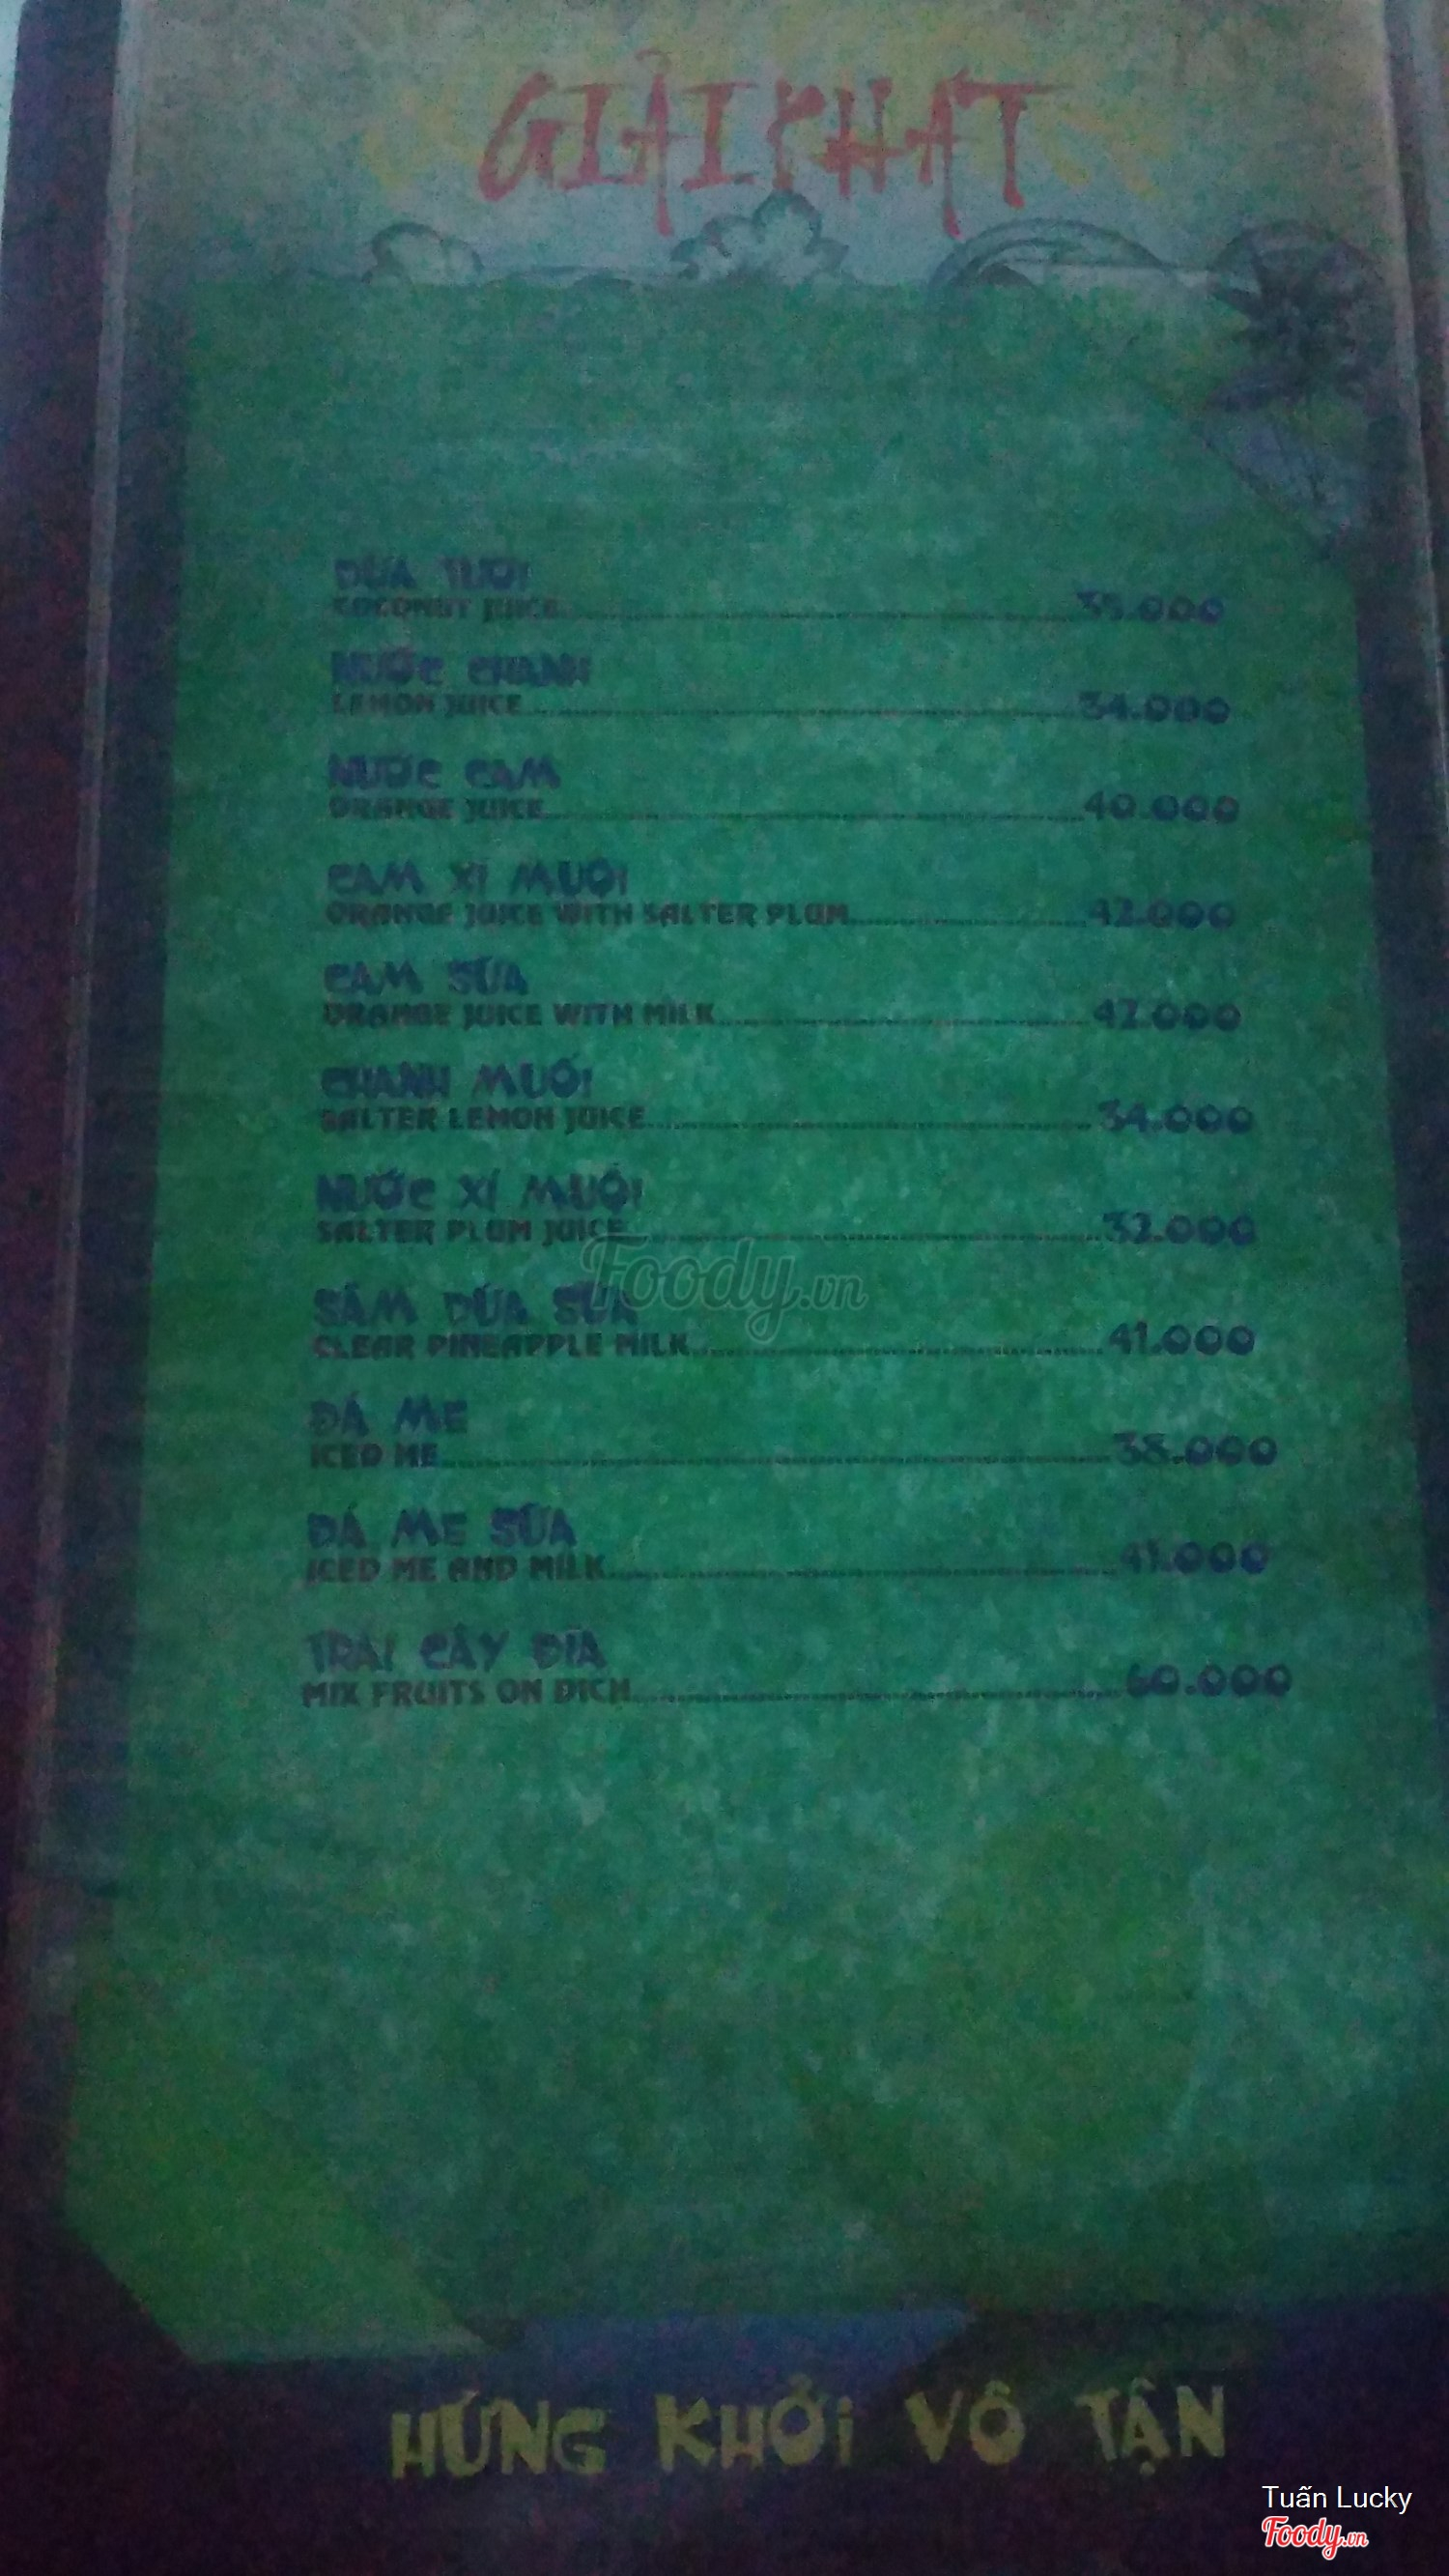 GIẢI KHÁT
DỪA TƯƠI
COCONUT JUICE
NƯỚC CHANH
LEMON JUICE 34.000
NƯỚC CAM
ORANGE JUICE 40.000
CAM XÍ MUỘI
ORANGE JUICE WITH SALTER PLUM 42.000
CAM SỮA
ORANGE JUICE WITH MILK 42.000
CHANH MUỐI
SALTER LEMON JUICE 34.000
NƯỚC XÍ MUỘI
SALTER PLUM JUICE 32.000
SÂM DỨA SỮA
CLEAR PINEAPPLE MILK 41.000
ĐÁ ME
ICED ME 38.000
ĐÁ ME SỮA
ICED ME AND MILK 41.000
TRÁI CÂY DĨA
MIX FRUITS ON DICH 60.000
Foody.vn
HỨNG KHỞI VÔ TẬN
Tuấn Lucky
Foody.vn